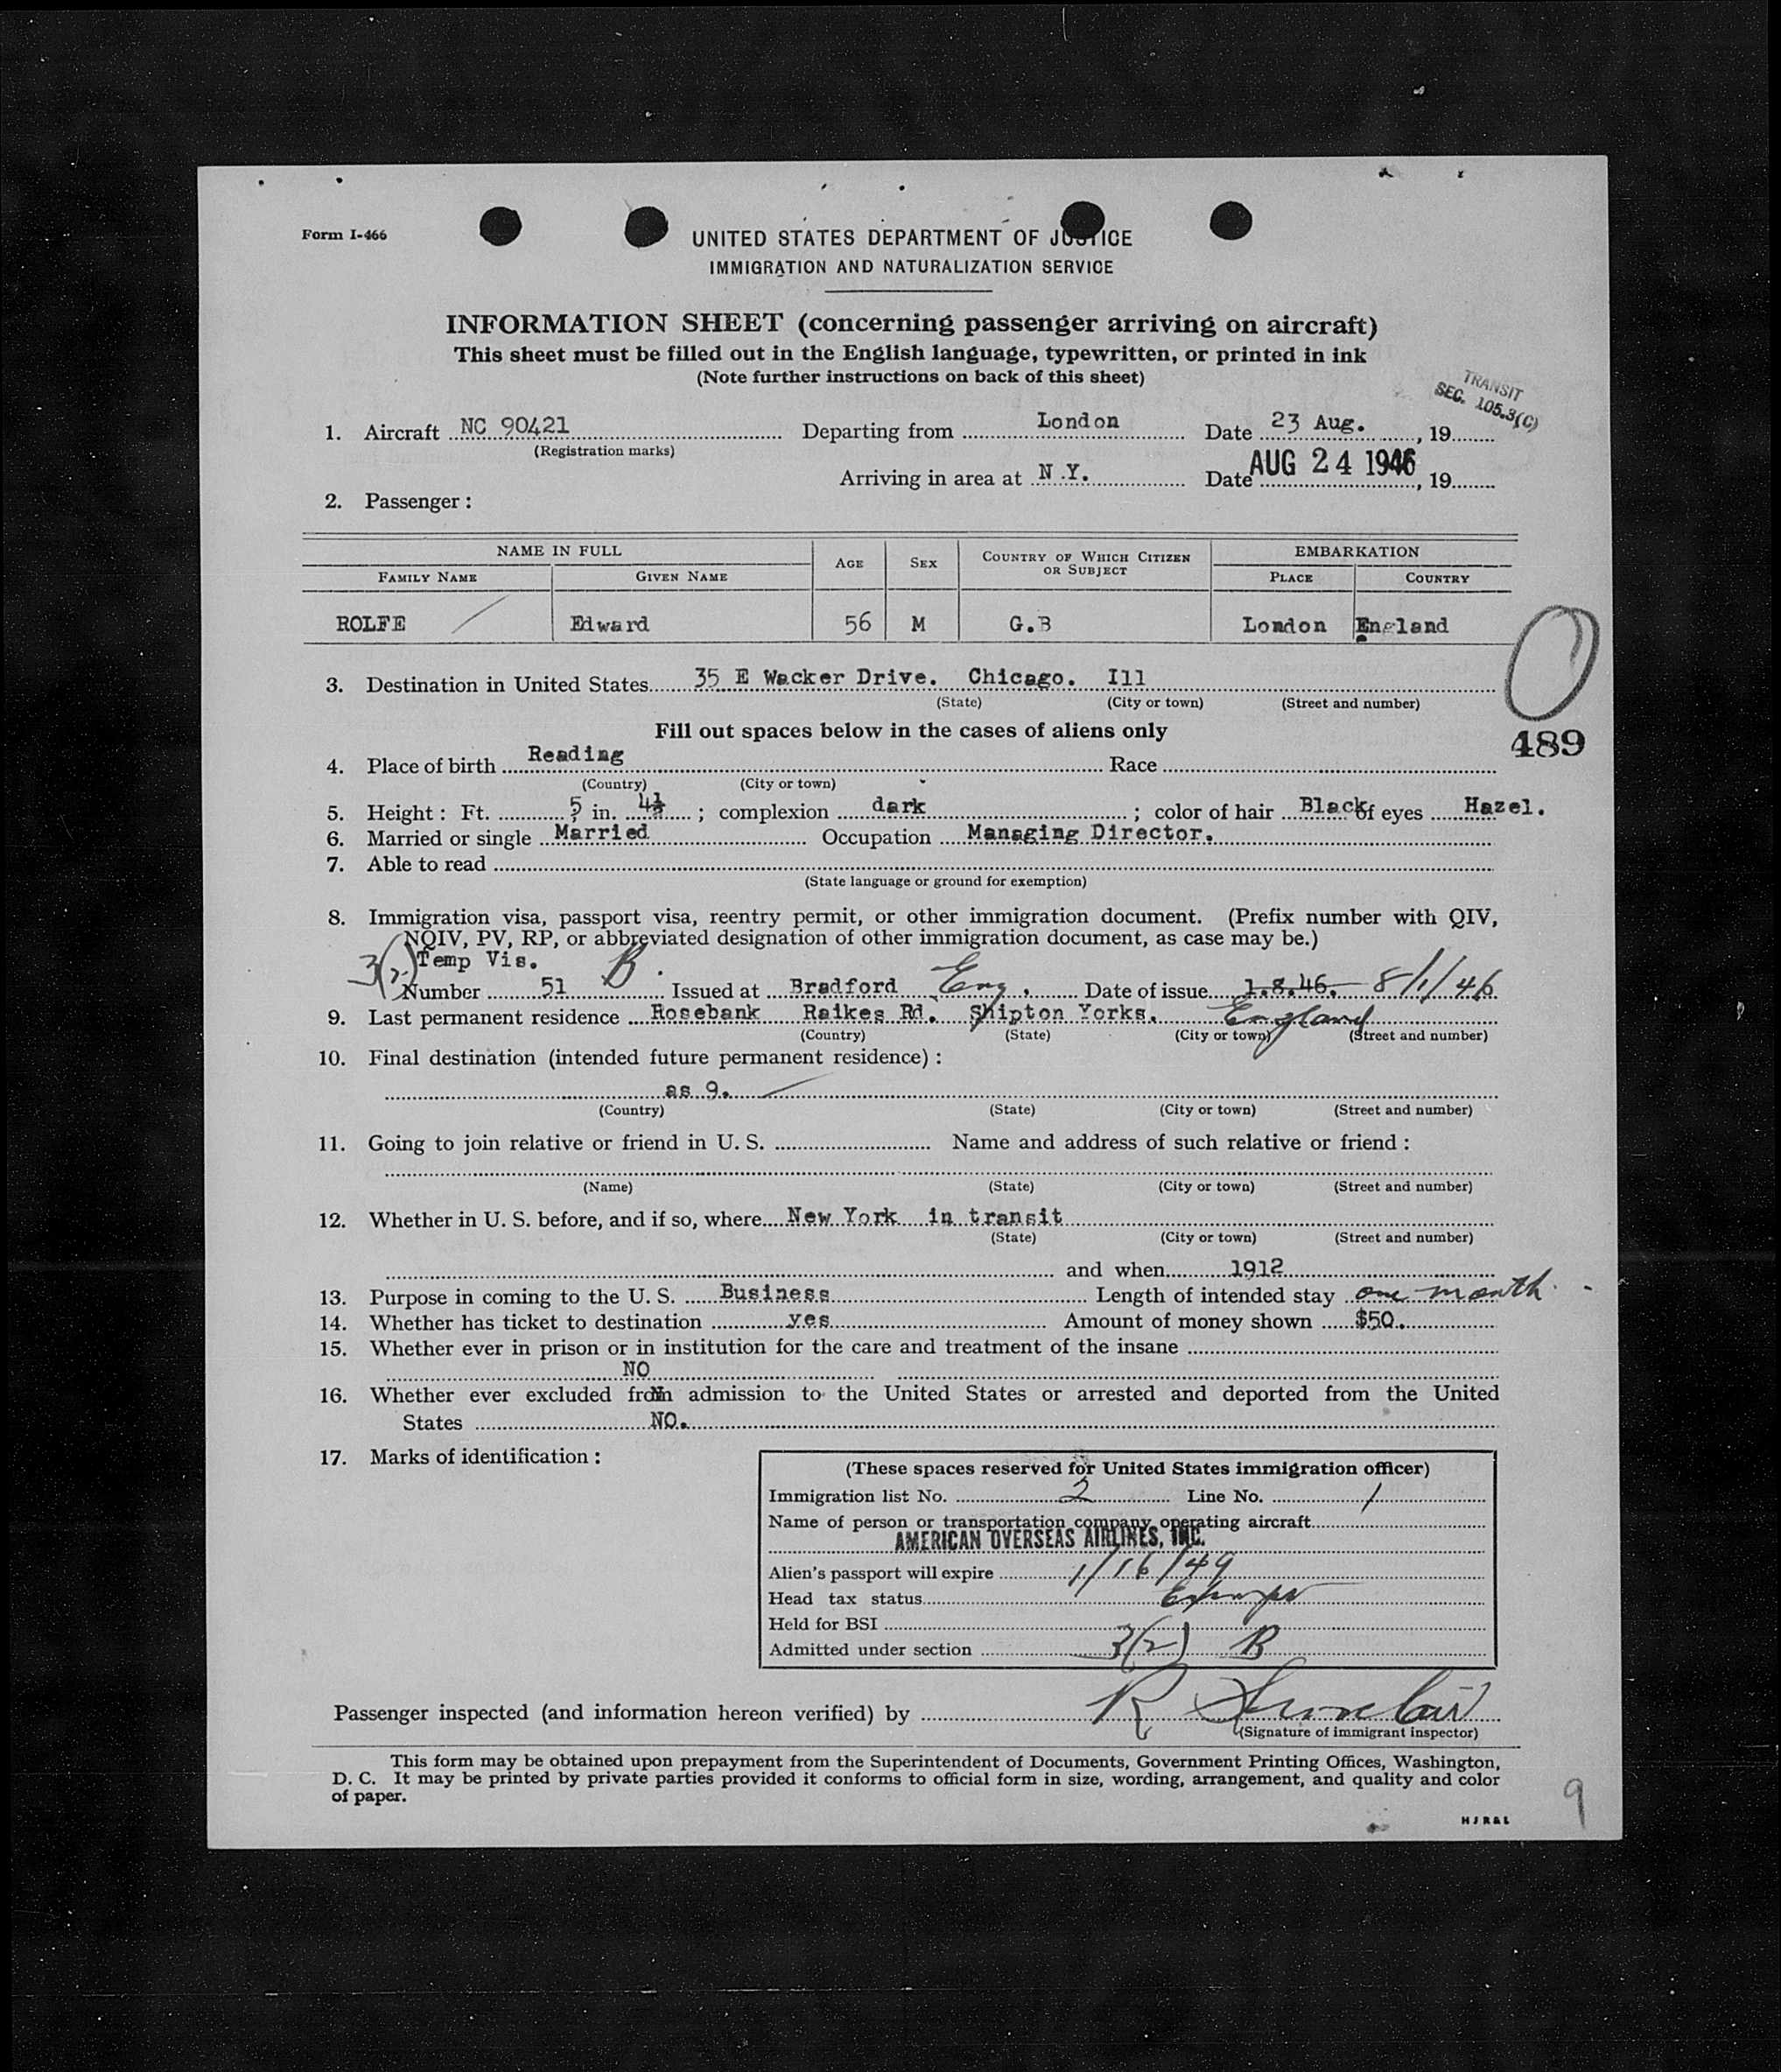 Form I-466
UNITED STATES DEPARTMENT OF JUSTICE
IMMIGRATION AND NATURALIZATION SERVICE
INFORMATION SHEET (concerning passenger arriving on aircraft)
This sheet must be filled out in the English language, typewritten, or printed in ink
(Note further instructions on back of this sheet)
TRANSIT
SEC. 105.3(C)
1. Aircraft NC 90421 Departing from London Date 23 Aug. , 19
(Registration marks)
Arriving in area at N.Y. Date AUG 24 1946 , 19
2. Passenger :
NAME IN FULL AGE SEX COUNTRY OF WHICH CITIZEN OR SUBJECT EMBARKATION
FAMILY NAME GIVEN NAME PLACE COUNTRY
ROLFE Edward 56 M G.B London England
3. Destination in United States 35 E Wacker Drive. Chicago. Ill
(State) (City or town) (Street and number)
Fill out spaces below in the cases of aliens only
489
4. Place of birth Reading Race
(Country) (City or town)
5. Height : Ft. 5 in. 4½ ; complexion dark ; color of hair Black of eyes Hazel.
6. Married or single Married Occupation Managing Director.
7. Able to read
(State language or ground for exemption)
8. Immigration visa, passport visa, reentry permit, or other immigration document. (Prefix number with QIV,
NQIV, PV, RP, or abbreviated designation of other immigration document, as case may be.)
3(2) Temp Vis. B.
Number 51 Issued at Bradford Eng. Date of issue 1.8.46. 8/1/46
9. Last permanent residence Rosebank Raikes Rd. Skipton Yorks. England
(Country) (State) (City or town) (Street and number)
10. Final destination (intended future permanent residence) :
as 9.
(Country) (State) (City or town) (Street and number)
11. Going to join relative or friend in U. S. Name and address of such relative or friend :
(Name) (State) (City or town) (Street and number)
12. Whether in U. S. before, and if so, where New York in transit
(State) (City or town) (Street and number)
and when 1912
13. Purpose in coming to the U. S. Business Length of intended stay one month
14. Whether has ticket to destination yes Amount of money shown $50.
15. Whether ever in prison or in institution for the care and treatment of the insane
NO
16. Whether ever excluded from admission to the United States or arrested and deported from the United
States NO.
17. Marks of identification :
(These spaces reserved for United States immigration officer)
Immigration list No. 2 Line No. 1
Name of person or transportation company operating aircraft
AMERICAN OVERSEAS AIRLINES, INC.
Alien's passport will expire 1/16/49
Head tax status
Held for BSI
Admitted under section 3(2) B
Passenger inspected (and information hereon verified) by R Sinclair
(Signature of immigrant inspector)
This form may be obtained upon prepayment from the Superintendent of Documents, Government Printing Offices, Washington,
D. C. It may be printed by private parties provided it conforms to official form in size, wording, arrangement, and quality and color
of paper.
HJR&L
9